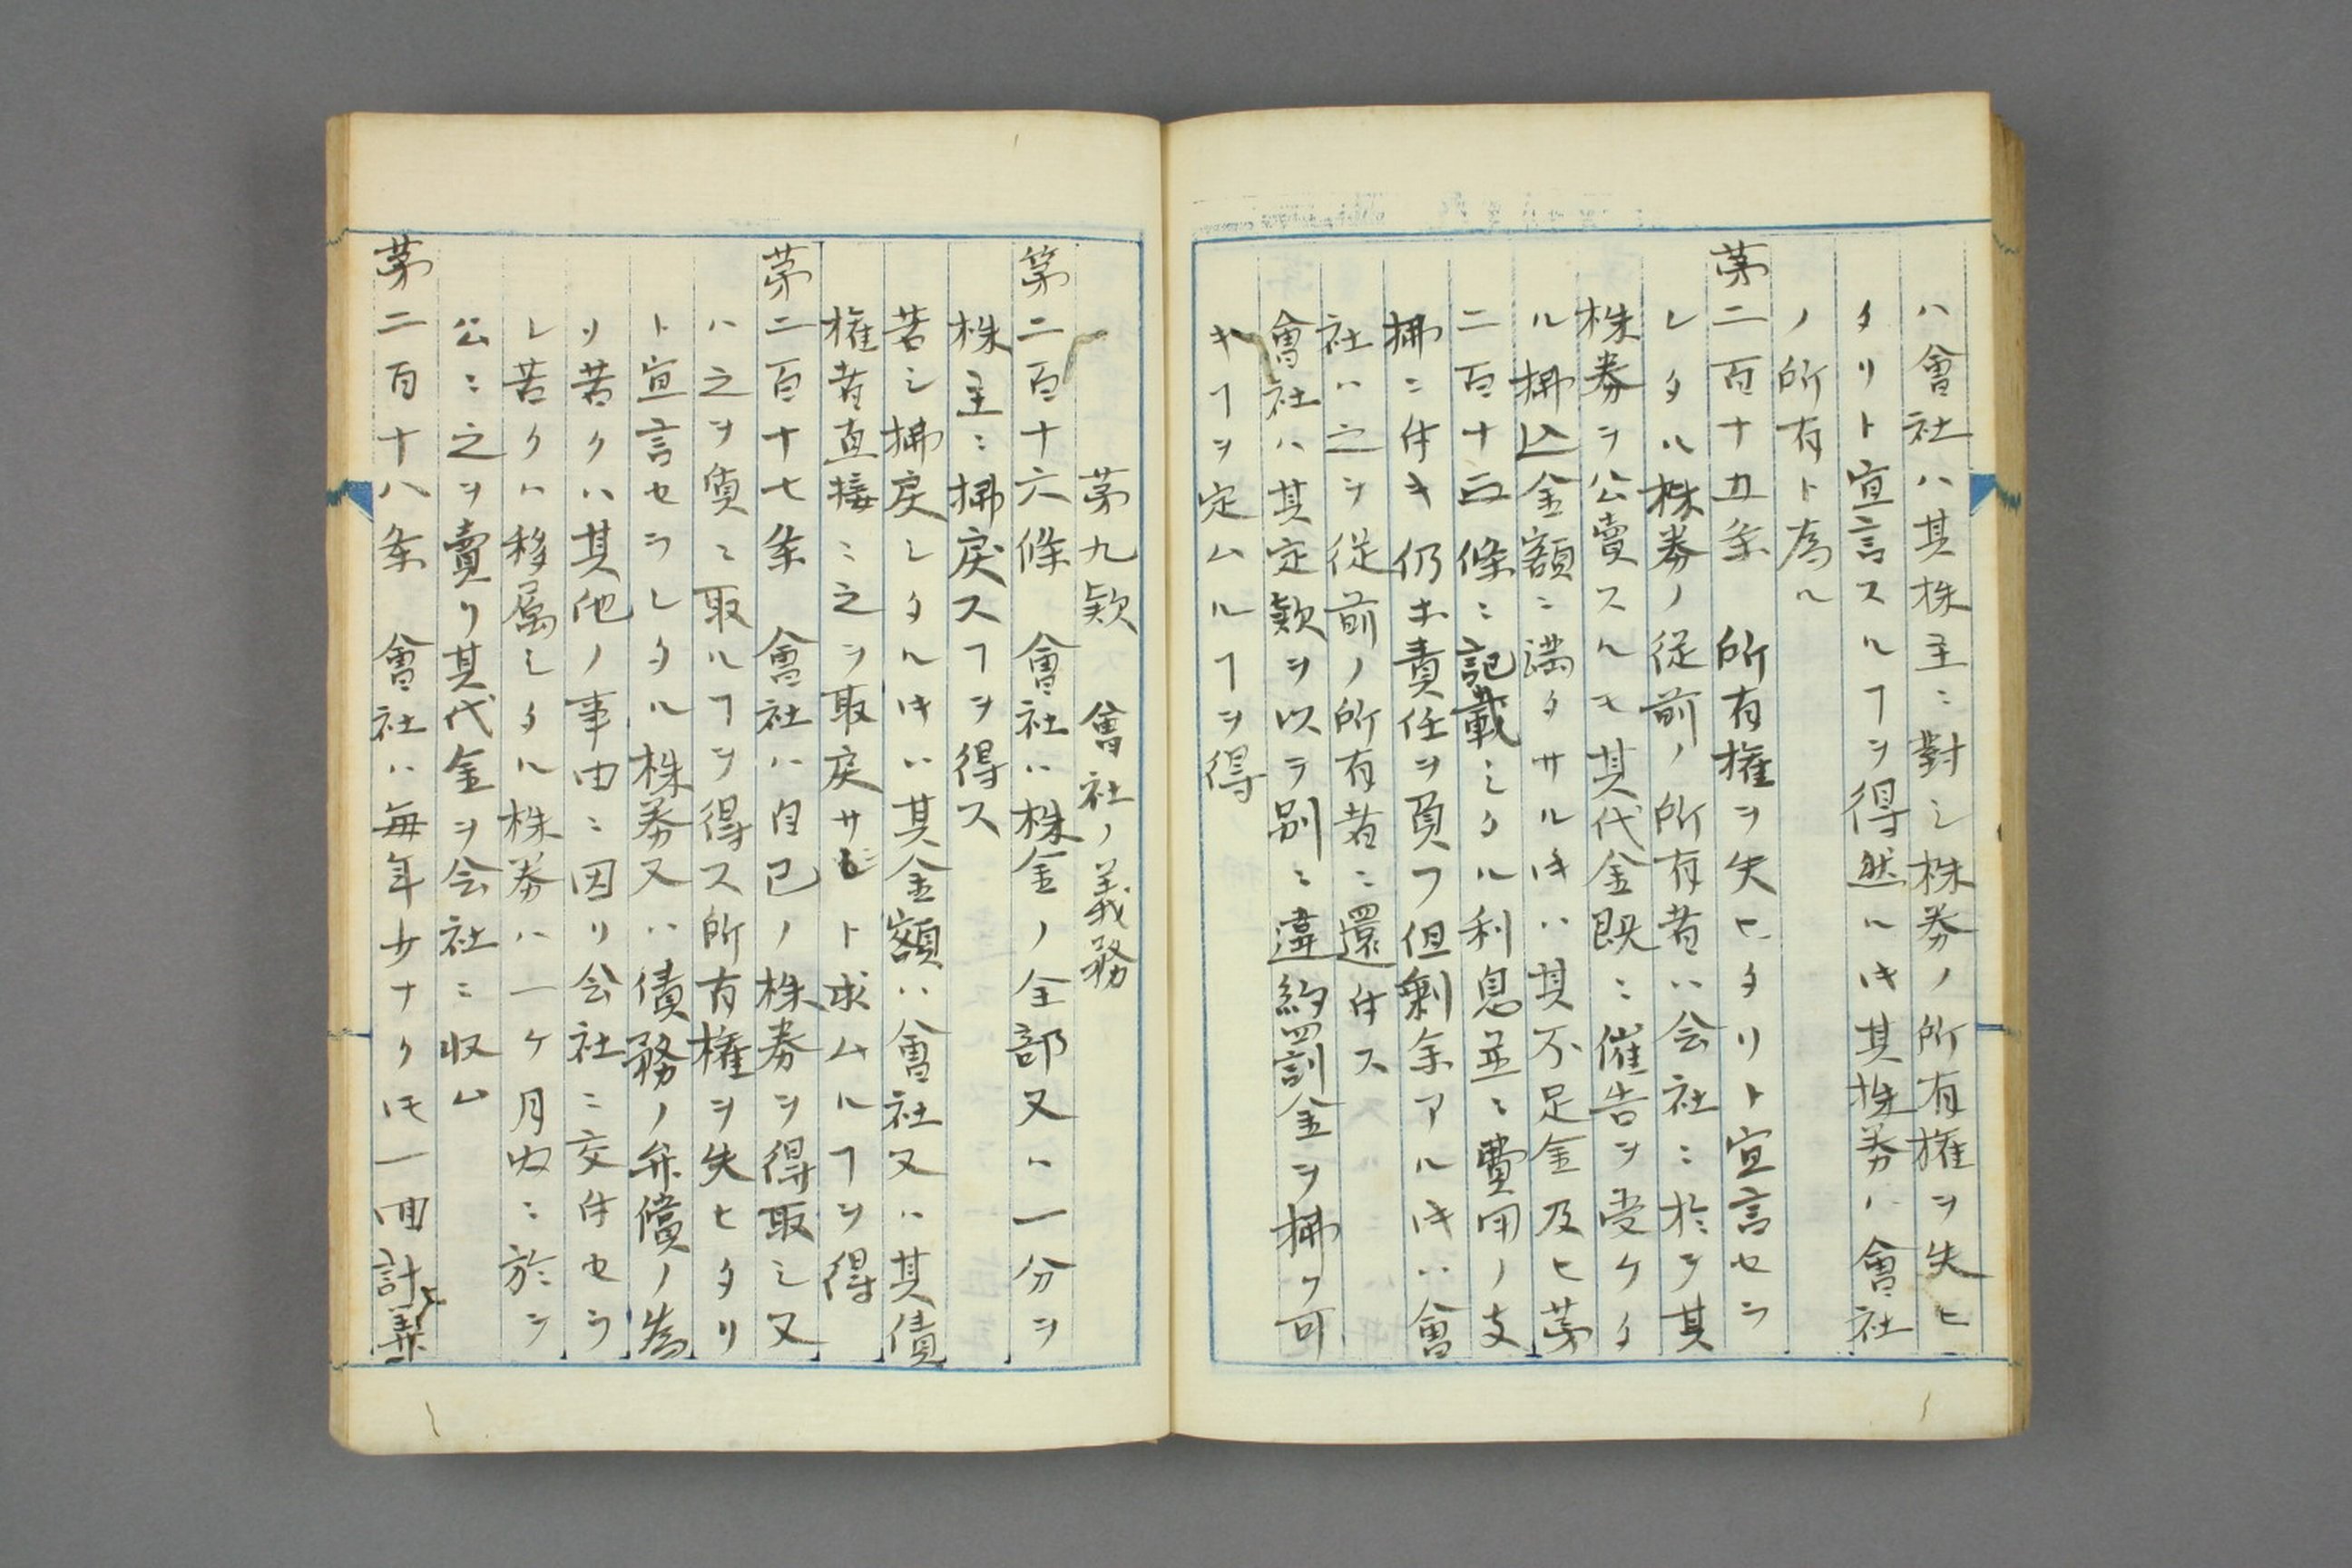 ハ會社ハ其株主ニ對シ株券ノ所有權ヲ失ヒ
タリト宣言スルヿヲ得然ル𪜈其株券ハ會社
ノ所有ト爲ル
第二百十五条 所有權ヲ失ヒタリト宣言セラ
レタル株券ノ従前ノ所有者ハ会社ニ於テ其
株券ヲ公賣スルモ其代金既ニ催告ヲ受ケタ
ル拂込金額ニ満タサル𪜈ハ其不足金及ヒ第
二百十三條ニ記載シタル利息並ニ費用ノ支
拂ニ付キ仍ホ責任ヲ負フ但剰余アル𪜈ハ會
社ハ之ヲ従前ノ所有者ニ還付ス
會社ハ其定款ヲ以テ別ニ違約罰金ヲ拂フ可
キヿヲ定ムルヿヲ得
第九款 會社ノ義務
第二百十六條 會社ハ株金ノ全部又ハ一分ヲ
株主ニ拂戻スヿヲ得ス
若シ拂戻シタル𪜈ハ其金額ハ會社又ハ其債
權者直接ニ之ヲ取戻サント求ムルヿヲ得
第二百十七条 會社ハ自己ノ株券ヲ得取シ又
ハ之ヲ質ニ取ルヿヲ得ス所有權ヲ失ヒタリ
ト宣言セラレタル株券又ハ債務ノ弁償ノ為
リ若クハ其他ノ事由ニ因リ会社ニ交付セラ
レ若クハ移属シタル株券ハ一ケ月内ニ於テ
公ニ之ヲ賣リ其代金ヲ会社ニ収ム
第二百十八条 會社ハ毎年少ナクトモ一回計算